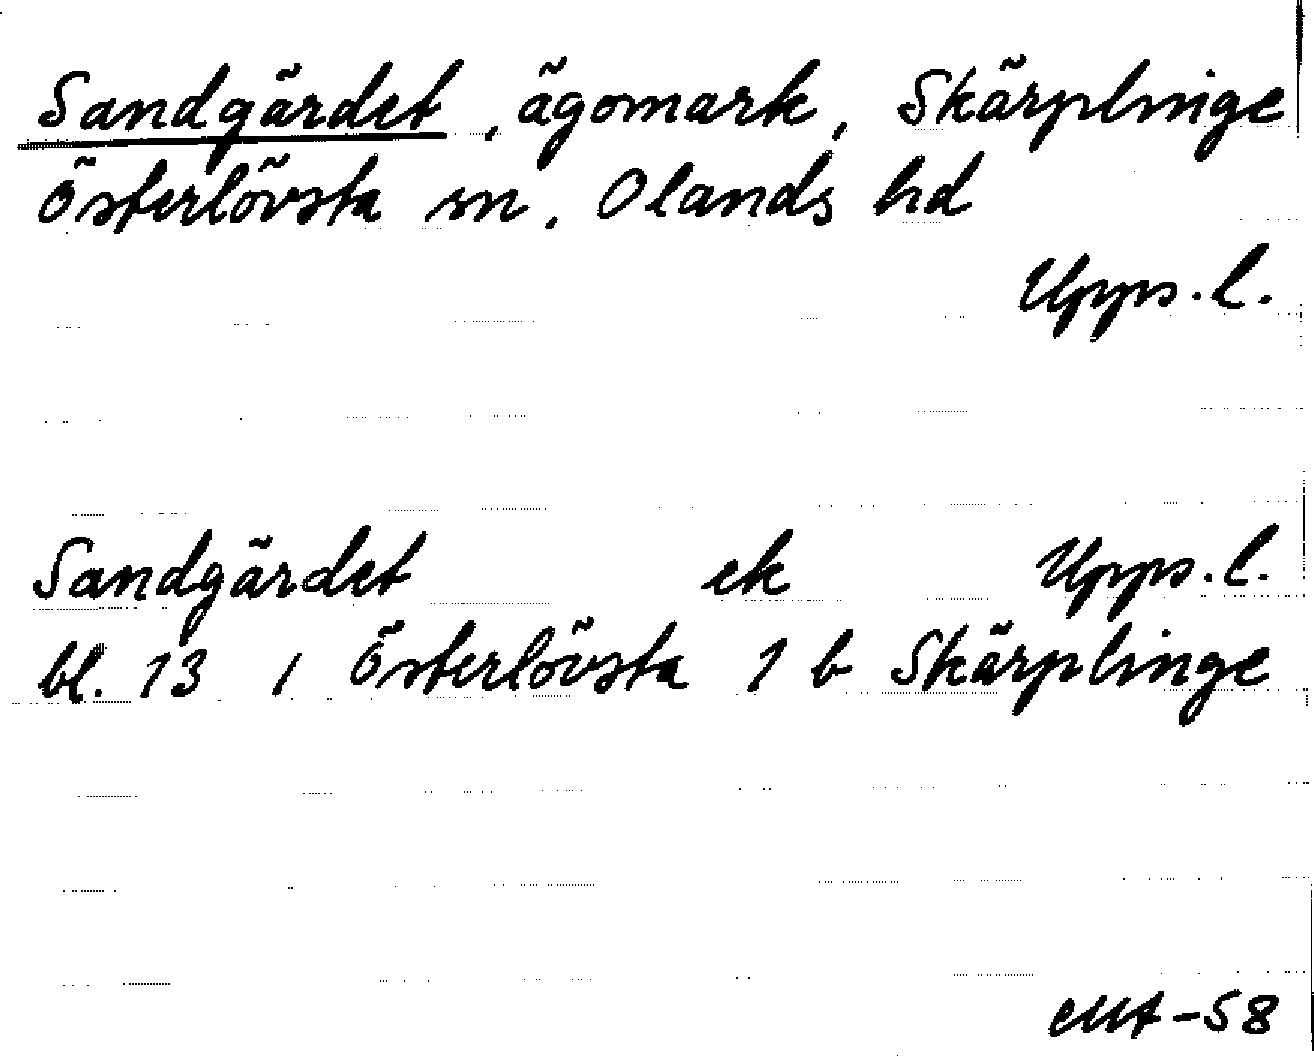 Sandgärdet, ägomark, Skärplinge
Österlövsta sn. Olands hd
Upps. l.
Sandgärdet ek Upps. l.
bl. 13 i Österlövsta 1 b Skärplinge
-58